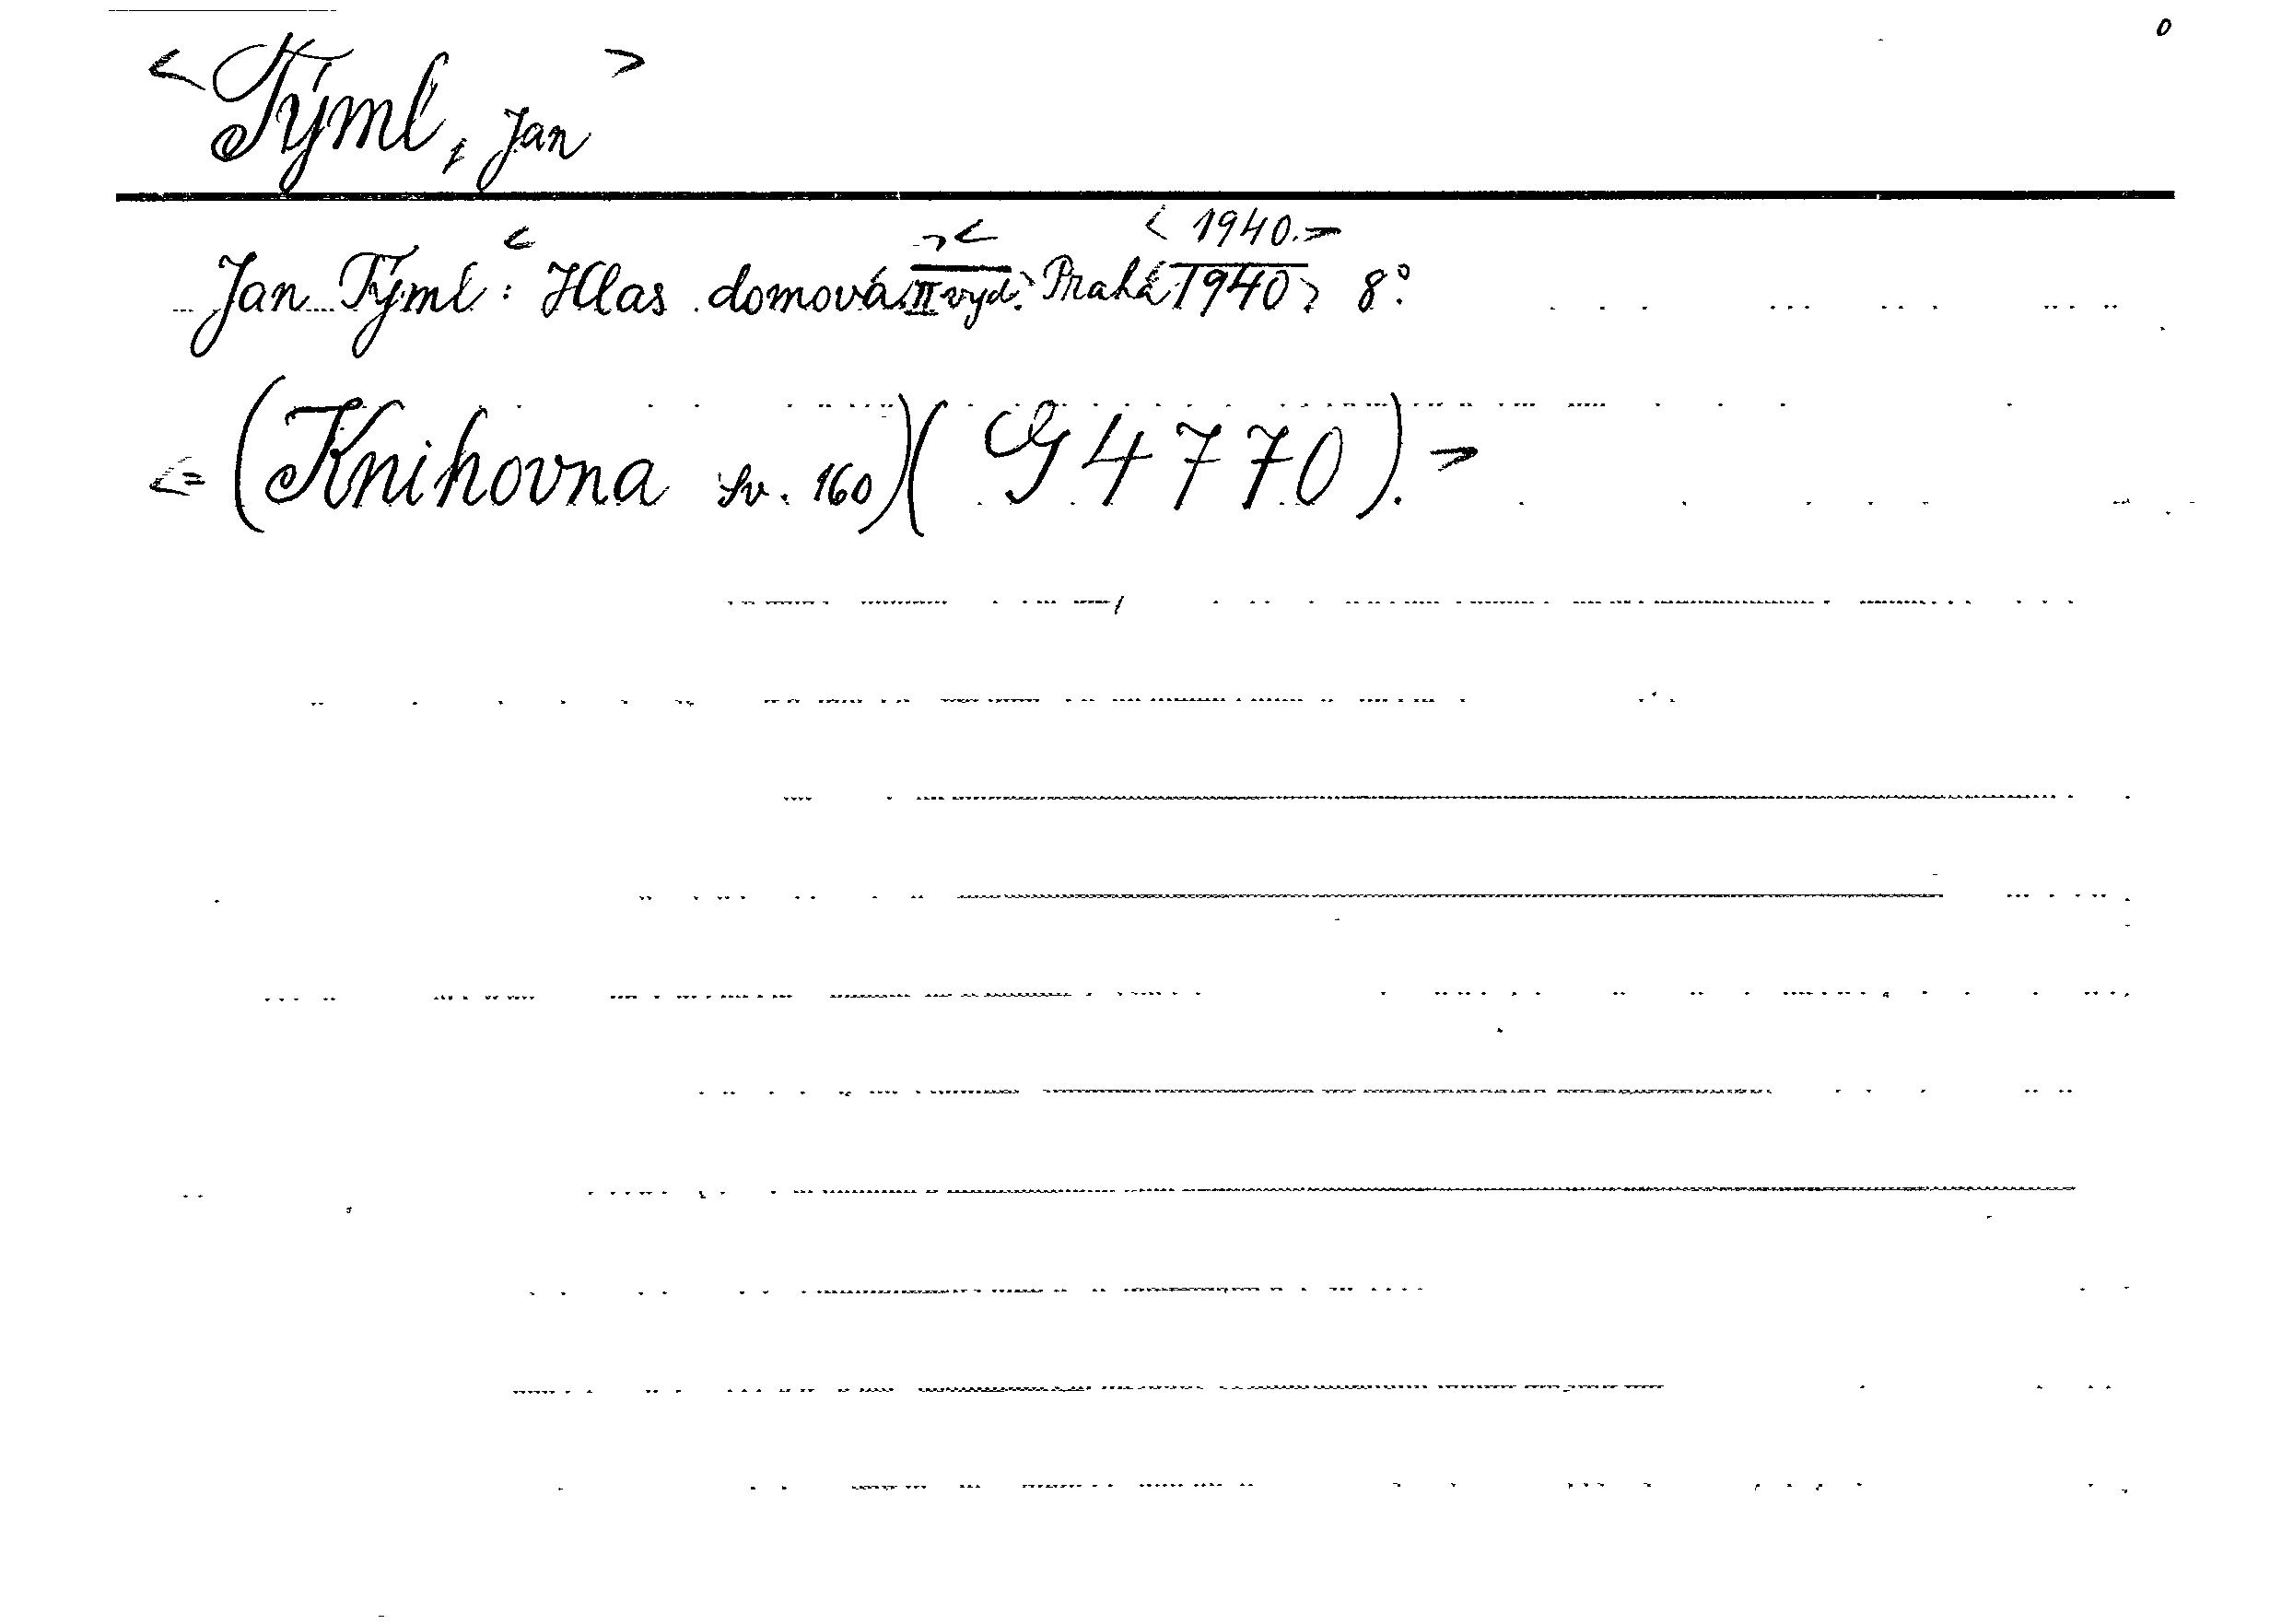 <Týml, Jan>
< 1940.>
Jan Týml: Hlas domova. II vyd. Praha 1940 8°.
<= (Knihovna sv. 160) (G 4770). >